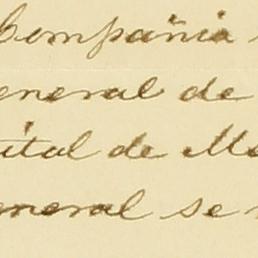 Compañia
eneral de
ital de Me
eneral se